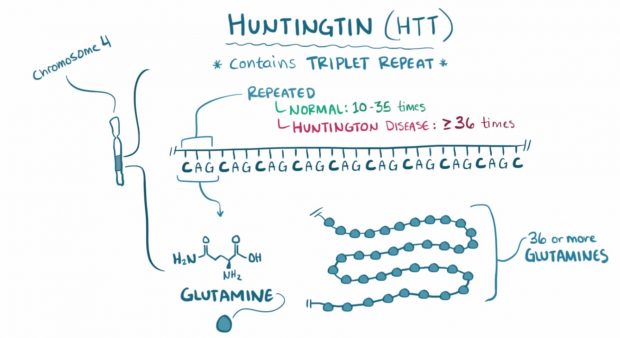 HUNTINGTIN (HTT)
* Contains TRIPLET REPEAT *
Chromosome 4
REPEATED
NORMAL: 10-35 times
HUNTINGTON DISEASE: ≥36 times
CAGCAGCAGCAGCAGCAGCAGCAGCAGC
H₂N
O
O
OH
NH₂
GLUTAMINE
36 or more
GLUTAMINES